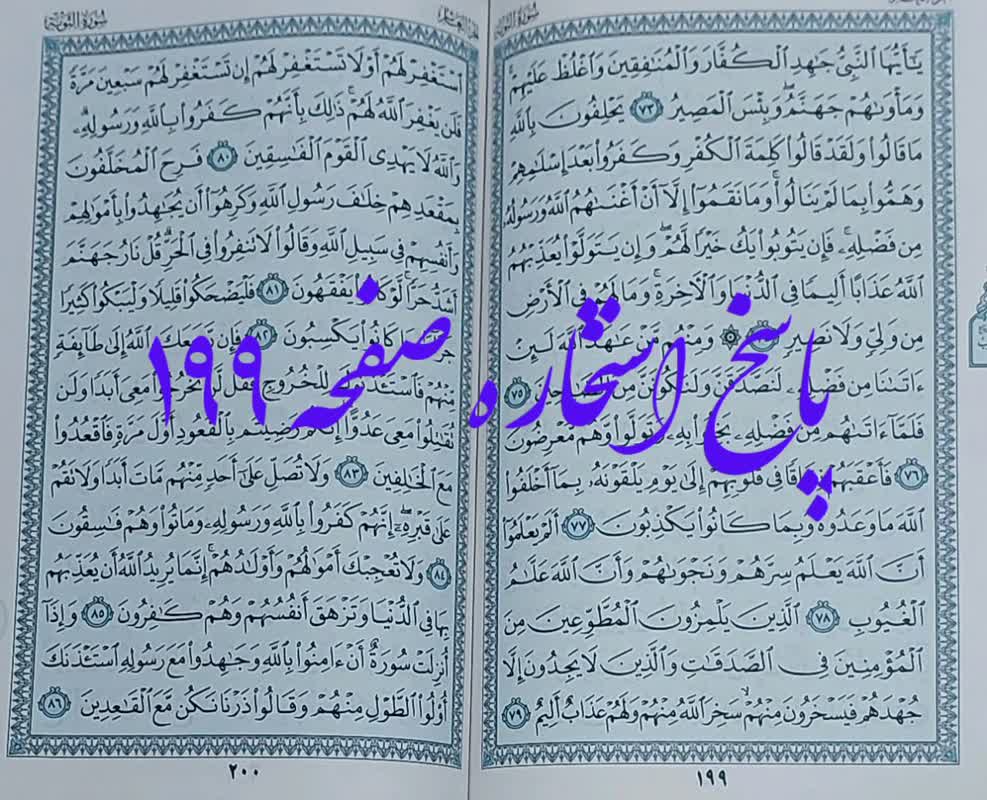 سُورَةُ التَّوْبَةِ
يَٰٓأَيُّهَا ٱلنَّبِيُّ جَٰهِدِ ٱلْكُفَّارَ وَٱلْمُنَٰفِقِينَ وَٱغْلُظْ عَلَيْهِمْۚ
وَمَأْوَىٰهُمْ جَهَنَّمُۖ وَبِئْسَ ٱلْمَصِيرُ ٧٣ يَحْلِفُونَ بِٱللَّهِ
مَا قَالُوا۟ وَلَقَدْ قَالُوا۟ كَلِمَةَ ٱلْكُفْرِ وَكَفَرُوا۟ بَعْدَ إِسْلَٰمِهِمْ
وَهَمُّوا۟ بِمَا لَمْ يَنَالُوا۟ۚ وَمَا نَقَمُوٓا۟ إِلَّآ أَنْ أَغْنَىٰهُمُ ٱللَّهُ وَرَسُولُهُۥ
مِن فَضْلِهِۦۚ فَإِن يَتُوبُوا۟ يَكُ خَيْرًا لَّهُمْۖ وَإِن يَتَوَلَّوْا۟ يُعَذِّبْهُمُ
ٱللَّهُ عَذَابًا أَلِيمًا فِي ٱلدُّنْيَا وَٱلْأَٰخِرَةِۚ وَمَا لَهُمْ فِي ٱلْأَرْضِ
مِن وَلِيٍّ وَلَا نَصِيرٍ وَمِنْهُم مَّنْ عَٰهَدَ ٱللَّهَ لَئِنْ
ءَاتَىٰنَا مِن فَضْلِهِۦ لَنَصَّدَّقَنَّ وَلَنَكُونَنَّ مِنَ ٱلصَّٰلِحِينَ ٧٥
فَلَمَّآ ءَاتَىٰهُم مِّن فَضْلِهِۦ بَخِلُوا۟ بِهِۦ وَتَوَلَّوا۟ وَّهُم مُّعْرِضُونَ
٧٦ فَأَعْقَبَهُمْ نِفَاقًا فِي قُلُوبِهِمْ إِلَىٰ يَوْمِ يَلْقَوْنَهُۥ بِمَآ أَخْلَفُوا۟
ٱللَّهَ مَا وَعَدُوهُ وَبِمَا كَانُوا۟ يَكْذِبُونَ ٧٧ أَلَمْ يَعْلَمُوٓا۟
أَنَّ ٱللَّهَ يَعْلَمُ سِرَّهُمْ وَنَجْوَىٰهُمْ وَأَنَّ ٱللَّهَ عَلَّٰمُ
ٱلْغُيُوبِ ٧٨ ٱلَّذِينَ يَلْمِزُونَ ٱلْمُطَّوِّعِينَ مِنَ
ٱلْمُؤْمِنِينَ فِي ٱلصَّدَقَٰتِ وَٱلَّذِينَ لَا يَجِدُونَ إِلَّا
جُهْدَهُمْ فَيَسْخَرُونَ مِنْهُمْۙ سَخِرَ ٱللَّهُ مِنْهُمْ وَلَهُمْ عَذَابٌ أَلِيمٌ ٧٩
١٩٩
سُورَةُ التَّوْبَةِ
ٱسْتَغْفِرْ لَهُمْ أَوْ لَا تَسْتَغْفِرْ لَهُمْ إِن تَسْتَغْفِرْ لَهُمْ سَبْعِينَ مَرَّةً
فَلَن يَغْفِرَ ٱللَّهُ لَهُمْۚ ذَٰلِكَ بِأَنَّهُمْ كَفَرُوا۟ بِٱللَّهِ وَرَسُولِهِۦۗ
وَٱللَّهُ لَا يَهْدِي ٱلْقَوْمَ ٱلْفَٰسِقِينَ ٨٠ فَرِحَ ٱلْمُخَلَّفُونَ
بِمَقْعَدِهِمْ خِلَٰفَ رَسُولِ ٱللَّهِ وَكَرِهُوٓا۟ أَن يُجَٰهِدُوا۟ بِأَمْوَٰلِهِمْ
وَأَنفُسِهِمْ فِي سَبِيلِ ٱللَّهِ وَقَالُوا۟ لَا تَنفِرُوا۟ فِي ٱلْحَرِّۗ قُلْ نَارُ جَهَنَّمَ
أَشَدُّ حَرًّاۚ لَّوْ كَانُوا۟ يَفْقَهُونَ ٨١ فَلْيَضْحَكُوا۟ قَلِيلًا وَلْيَبْكُوا۟ كَثِيرًا
جَزَآءًۢ بِمَا كَانُوا۟ يَكْسِبُونَ ٨٢ فَإِن رَّجَعَكَ ٱللَّهُ إِلَىٰ طَآئِفَةٍ
مِّنْهُمْ فَٱسْتَـْٔذَنُوكَ لِلْخُرُوجِ فَقُل لَّن تَخْرُجُوا۟ مَعِيَ أَبَدًا وَلَن
تُقَٰتِلُوا۟ مَعِيَ عَدُوًّاۖ إِنَّكُمْ رَضِيتُم بِٱلْقُعُودِ أَوَّلَ مَرَّةٍ فَٱقْعُدُوا۟
مَعَ ٱلْخَٰلِفِينَ ٨٣ وَلَا تُصَلِّ عَلَىٰٓ أَحَدٍ مِّنْهُم مَّاتَ أَبَدًا وَلَا تَقُمْ
عَلَىٰ قَبْرِهِۦٓۖ إِنَّهُمْ كَفَرُوا۟ بِٱللَّهِ وَرَسُولِهِۦ وَمَاتُوا۟ وَهُمْ فَٰسِقُونَ
٨٤ وَلَا تُعْجِبْكَ أَمْوَٰلُهُمْ وَأَوْلَٰدُهُمْۚ إِنَّمَا يُرِيدُ ٱللَّهُ أَن يُعَذِّبَهُم
بِهَا فِي ٱلدُّنْيَا وَتَزْهَقَ أَنفُسُهُمْ وَهُمْ كَٰفِرُونَ ٨٥ وَإِذَآ
أُنزِلَتْ سُورَةٌ أَنْ ءَامِنُوا۟ بِٱللَّهِ وَجَٰهِدُوا۟ مَعَ رَسُولِهِ ٱسْتَـْٔذَنَكَ
أُو۟لُوا۟ ٱلطَّوْلِ مِنْهُمْ وَقَالُوا۟ ذَرْنَا نَكُن مَّعَ ٱلْقَٰعِدِينَ ٨٦
٢٠٠
پاسخ استخاره صفحه ۱۹۹